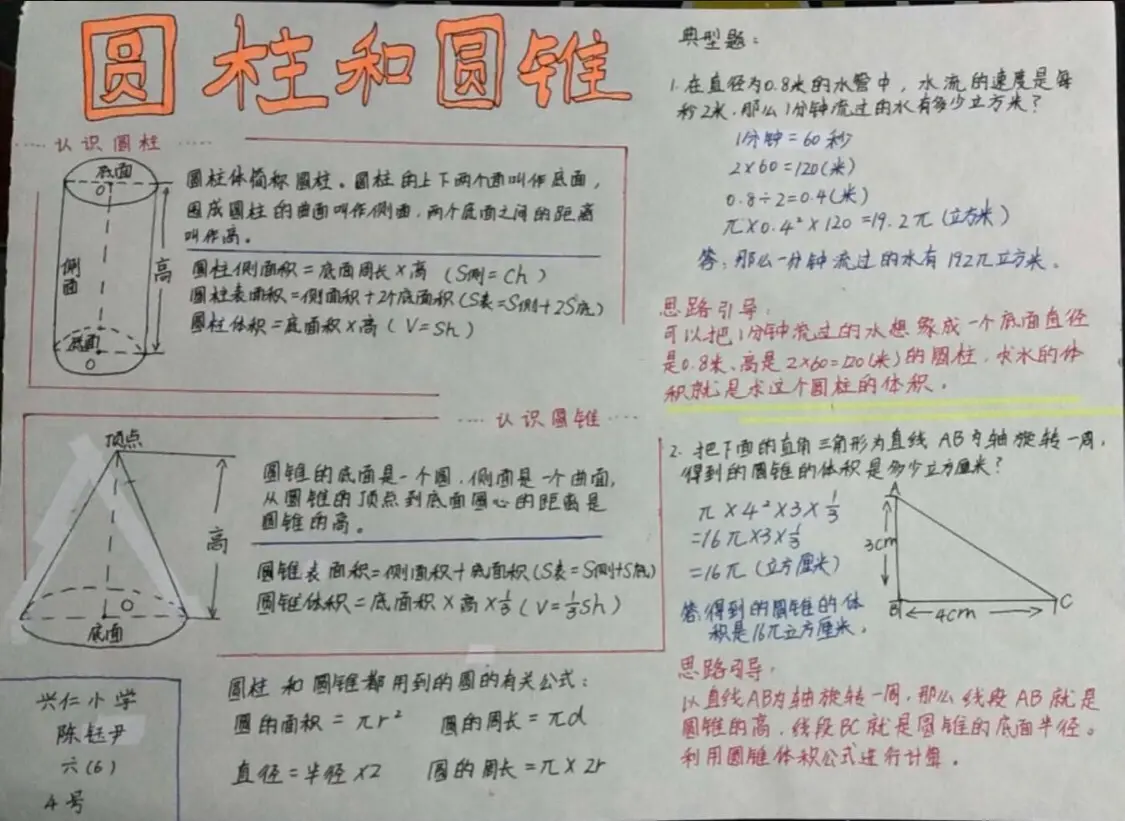 圆柱和圆锥
认识圆柱
底面
O
侧面
高
底面
O
圆柱体简称圆柱。圆柱的上下两个面叫作底面,
围成圆柱的曲面叫作侧面,两个底面之间的距离
叫作高。
圆柱侧面积=底面周长×高 (S侧=Ch)
圆柱表面积=侧面积+2个底面积(S表=S侧+2S底)
圆柱体积=底面积×高(V=Sh)
认识圆锥
顶点
高
O
底面
圆锥的底面是一个圆,侧面是一个曲面,
从圆锥的顶点到底面圆心的距离是
圆锥的高。
圆锥表面积=侧面积+底面积(S表=S侧+S底)
圆锥体积=底面积×高×⅓(V=⅓Sh)
兴仁小学
陈钰尹
六(6)
4号
圆柱和圆锥都用到的圆的有关公式:
圆的面积=πr² 圆的周长=πd
直径=半径×2 圆的周长=π×2r
典型题:
1.在直径为0.8米的水管中,水流的速度是每
秒2米,那么1分钟流过的水有多少立方米?
1分钟=60秒
2×60=120(米)
0.8÷2=0.4(米)
π×0.4²×120=19.2π(立方米)
答:那么一分钟流过的水有192π立方米。
思路引导:
可以把1分钟流过的水想象成一个底面直径
是0.8米、高是2×60=120(米)的圆柱,求水的体
积就是求这个圆柱的体积。
2.把下面的直角三角形为直线AB为轴旋转一周,
得到的圆锥的体积是多少立方厘米?
π×4²×3×⅓
=16π×3×⅓
=16π(立方厘米)
答:得到的圆锥的体
积是16π立方厘米。
A
3cm
B
4cm
C
思路引导:
以直线AB为轴旋转一周,那么线段AB就是
圆锥的高,线段BC就是圆锥的底面半径。
利用圆锥体积公式进行计算。